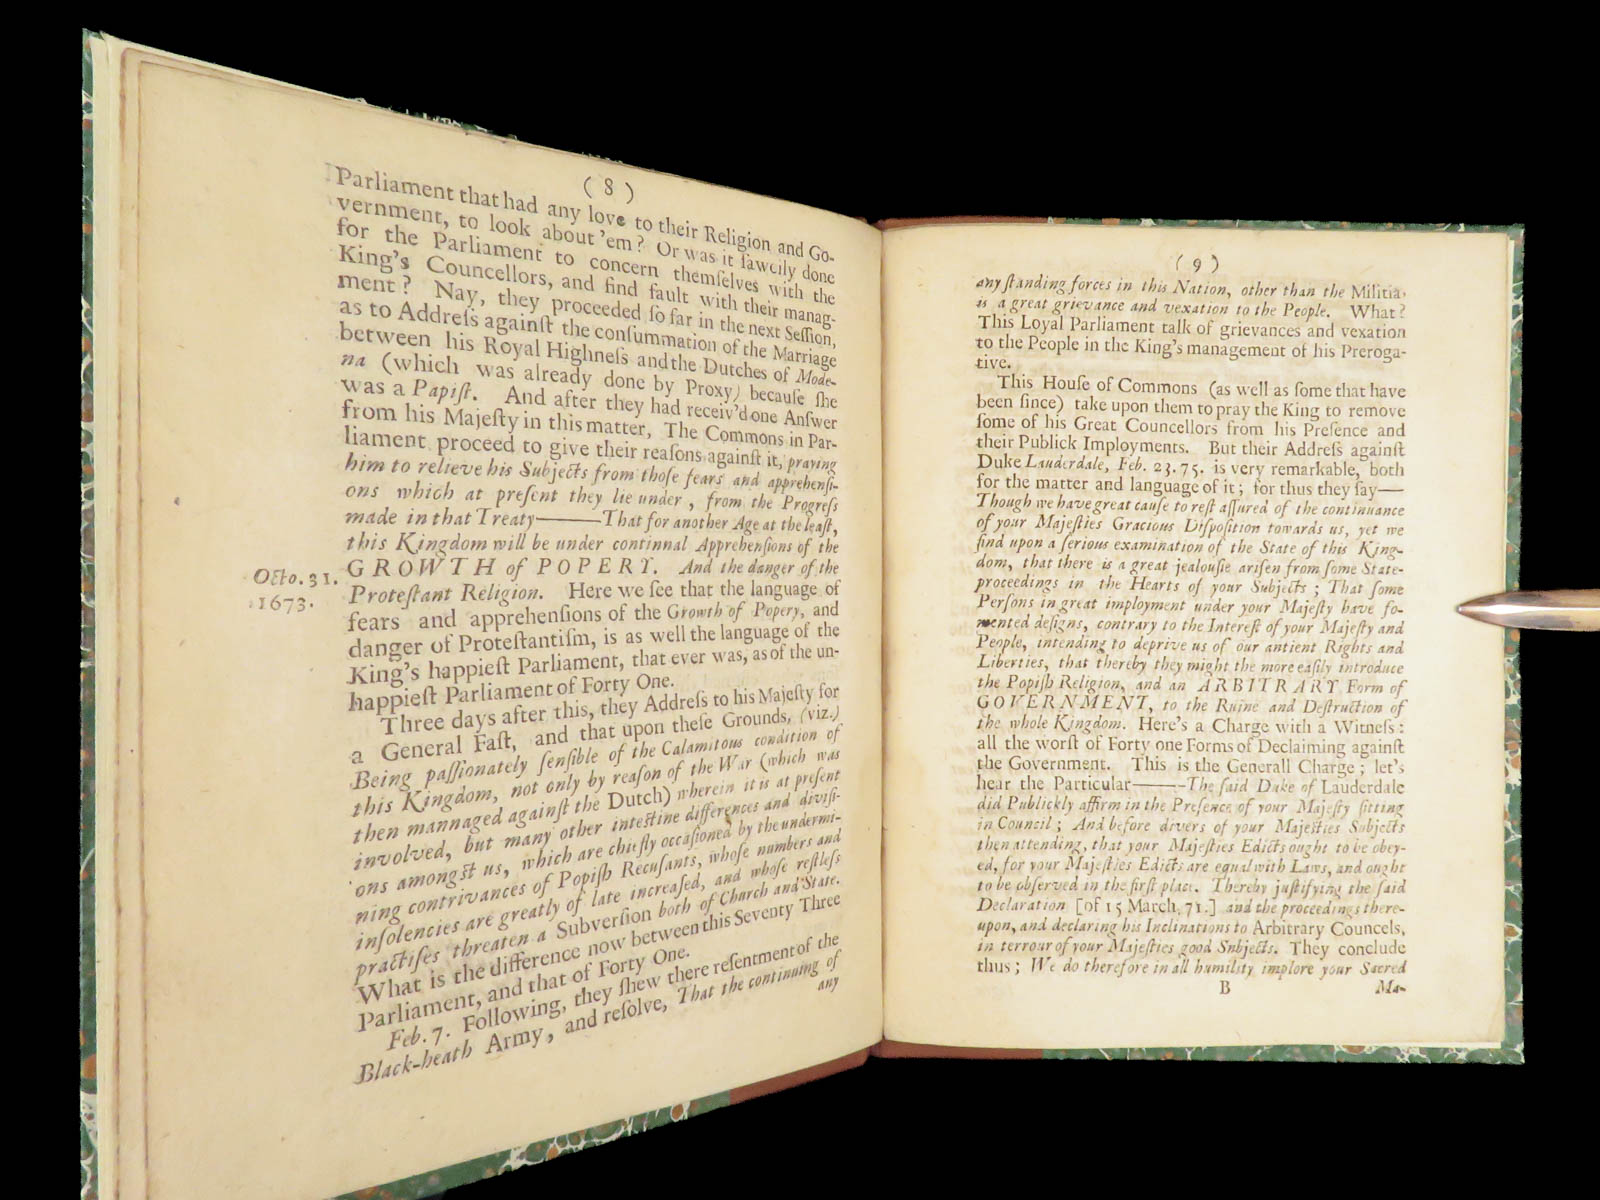 ( 8 )
Parliament that had any love to their Religion and Go-
vernment, to look about 'em? Or was it ſawcily done
for the Parliament to concern themſelves with the
King's Councellors, and find fault with their manag-
ment? Nay, they proceeded ſo far in the next Seſſion,
as to Addreſs againſt the conſummation of the Marriage
between his Royal Highneſs and the Dutches of Mode-
na (which was already done by Proxy) becauſe ſhe
was a Papiſt. And after they had receiv'd one Anſwer
from his Majeſty in this matter, The Commons in Par-
liament proceed to give their reaſons againſt it, praying
him to relieve his Subjects from thoſe fears and apprehenſi-
ons which at preſent they lie under, from the Progreſs
made in that Treaty———That for another Age at the leaſt,
this Kingdom will be under continnal Apprehenſions of the
Octo. 31. GROWTH of POPERY. And the danger of the
1673. Proteſtant Religion. Here we ſee that the language of
fears and apprehenſions of the Growth of Popery, and
danger of Proteſtantiſm, is as well the language of the
King's happieſt Parliament, that ever was, as of the un-
happieſt Parliament of Forty One.
Three days after this, they Addreſs to his Majeſty for
a General Faſt, and that upon theſe Grounds, (viz.)
Being paſſionately ſenſible of the Calamitous condition of
this Kingdom, not only by reaſon of the War (which was
then mannaged againſt the Dutch) wherein it is at preſent
involved, but many other inteſtine differences and diviſi-
ons amongst us, which are chiefly occaſioned by the undermi-
ning contrivances of Popiſh Recuſants, whoſe numbers and
inſolencies are greatly of late increaſed, and whoſe reſtleſs
practiſes threaten a Subverſion both of Church and State.
What is the difference now between this Seventy Three
Parliament, and that of Forty One.
Feb. 7. Following, they ſhew there reſentment of the
Black-heath Army, and reſolve, That the continuing of
any
( 9 )
any ſtanding forces in this Nation, other than the Militia,
is a great grievance and vexation to the People. What?
This Loyal Parliament talk of grievances and vexation
to the People in the King's management of his Preroga-
tive.
This Houſe of Commons (as well as ſome that have
been ſince) take upon them to pray the King to remove
ſome of his Great Councellors from his Preſence and
their Publick Imployments. But their Addreſs againſt
Duke Lauderdale, Feb. 23. 75. is very remarkable, both
for the matter and language of it; for thus they ſay——
Though we have great cauſe to reſt aſſured of the continuance
of your Majeſties Gracious Diſpoſition towards us, yet we
find upon a ſerious examination of the State of this King-
dom, that there is a great jealouſie ariſen from ſome State-
proceedings in the Hearts of your Subjects; That ſome
Perſons in great imployment under your Majeſty have fo-
mented deſigns, contrary to the Intereſt of your Majeſty and
People, intending to deprive us of our antient Rights and
Liberties, that thereby they might the more eaſily introduce
the Popiſh Religion, and an ARBITRARY Form of
GOVERNMENT, to the Ruine and Deſtruction of
the whole Kingdom. Here's a Charge with a Witneſs:
all the worſt of Forty one Forms of Declaiming againſt
the Government. This is the Generall Charge; let's
hear the Particular———The ſaid Duke of Lauderdale
did Publickly affirm in the Preſence of your Majeſty ſitting
in Council; And before divers of your Majeſties Subjects
then attending, that your Majeſties Edicts ought to be obey-
ed, for your Majeſties Edicts are equal with Laws, and ought
to be obſerved in the firſt place. Thereby juſtifying the ſaid
Declaration [of 15 March, 71.] and the proceedings there-
upon, and declaring his Inclinations to Arbitrary Councels,
in terrour of your Majeſties good Subjects. They conclude
thus; We do therefore in all humility implore your Sacred
B Ma-